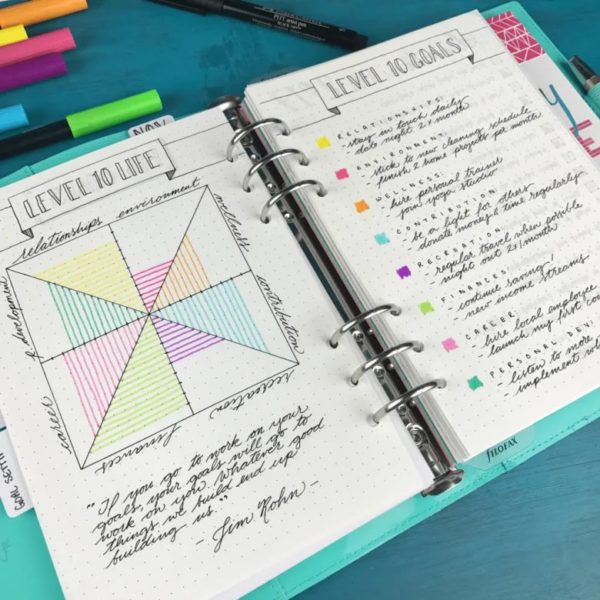 LEVEL 10 LIFE
relationships
environment
wellness
contribution
recreation
finances
career
development
"If you go to work on your
goals, your goals will go to
work on you. Whatever good
things we build end up
building us."
- Jim Rohn -
LEVEL 10 GOALS
RELATIONSHIPS:
- stay in touch daily
- date night 2x/month
ENVIRONMENT:
- stick to new cleaning schedule
- finish 2 home projects per month
WELLNESS:
- hire personal trainer
- join yoga studio
CONTRIBUTION:
- be a light for others
- donate money & time regularly
RECREATION:
- regular travel when possible
- night out 2x/month
FINANCES:
- continue saving!
- new income streams
CAREER:
- hire local employee
- launch my first
PERSONAL DEV
- listen to more
- implement
NOV
GOAL SETTI
FILOFAX
PITT artist pen